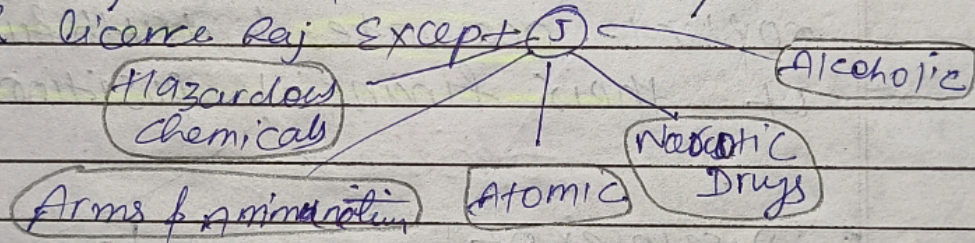 Licence Raj - Except 5
Alcoholic
Hazardous
Chemicals
Narcotic
Drugs
Atomic
Arms & Ammunation